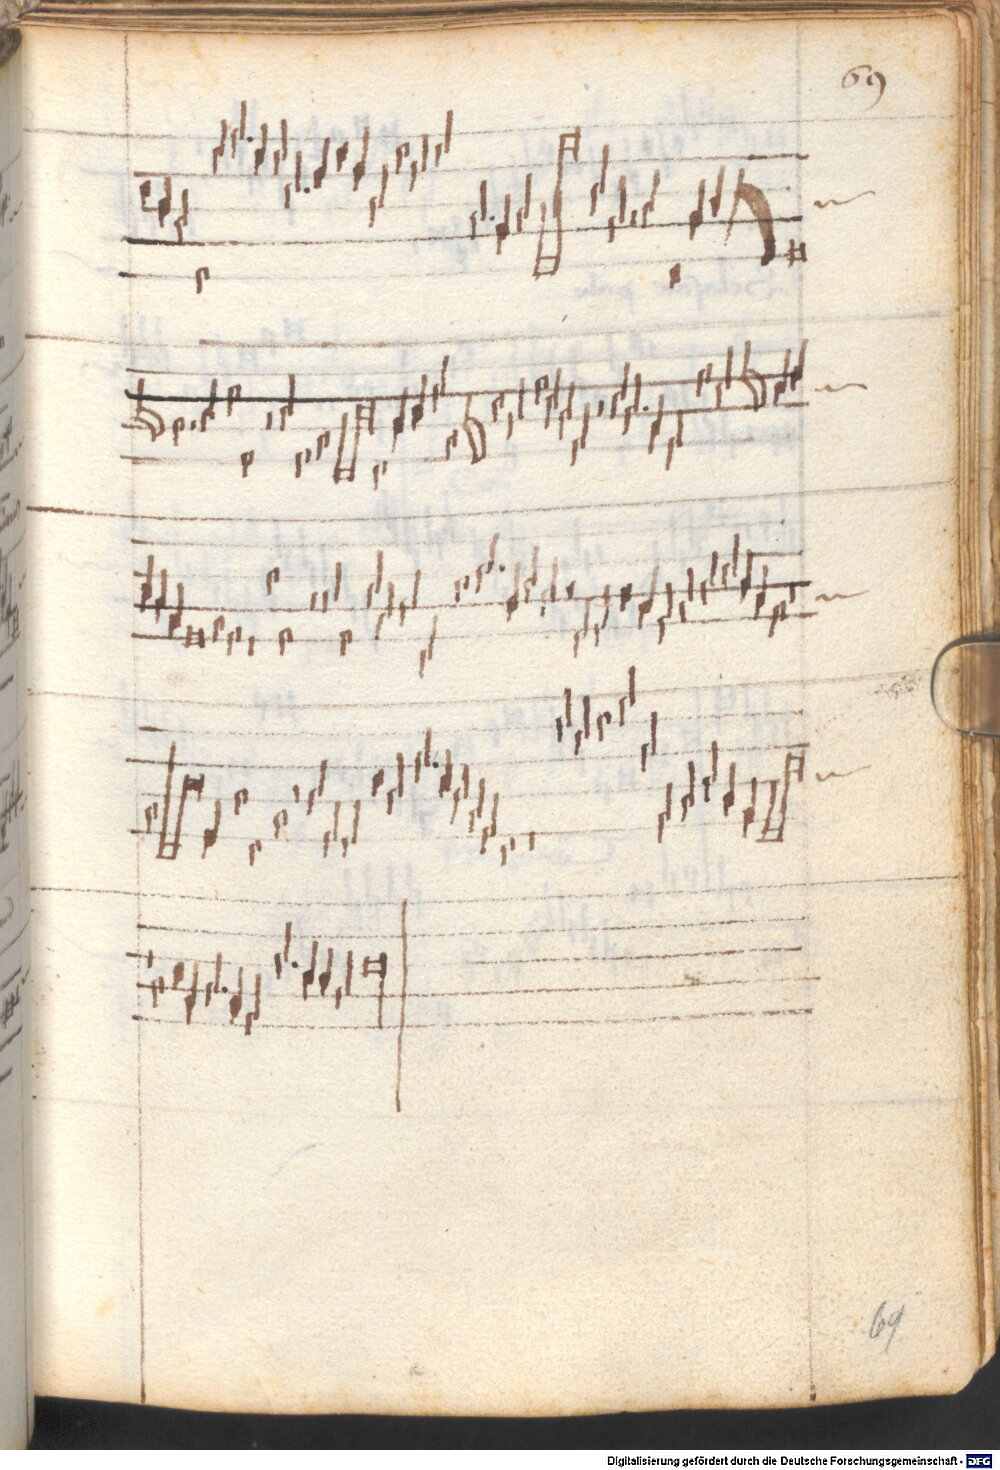 69
69
Digitalisierung gefördert durch die Deutsche Forschungsgemeinschaft - DFG